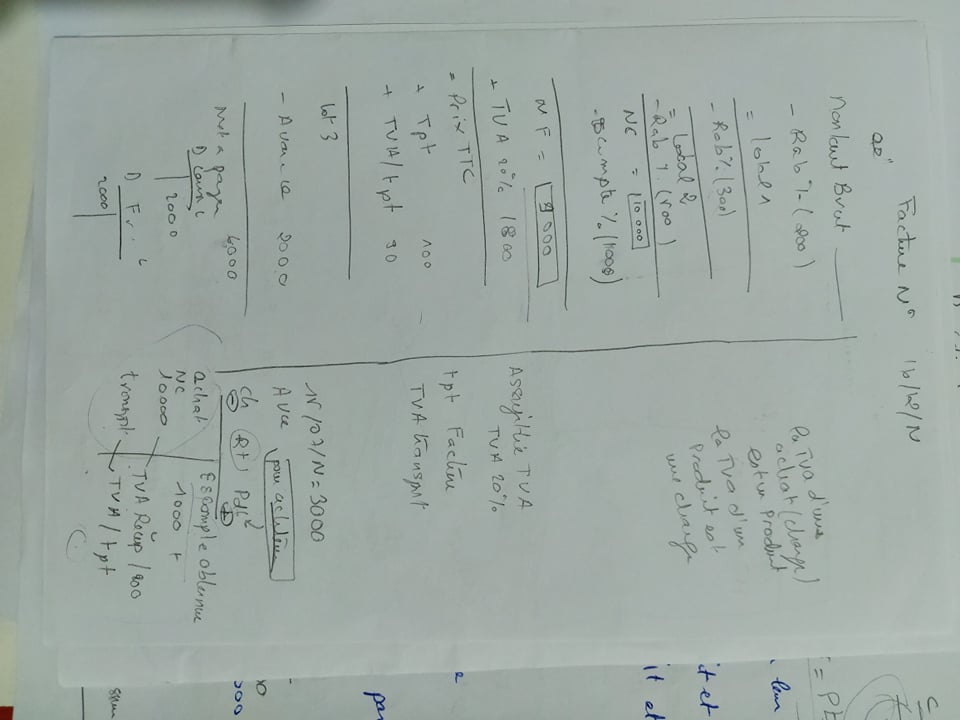 Facture N° 16/12/N
Montant Brut
- Rab % (200)
= total 1
- Rab % (300)
= total 2
- Rab % (500)
NC = 10 000
- escompte % (1000)
NF = 9 000
+ TVA 20% 1800
= Prix TTC
+ Tpt 100
+ TVA/tpt
tot 3
- Avance 2000
Net a payer 6000
D C
2000
D Fr. C
2000
la TVA d'une
achat (charge)
est un Produit
la TVA d'un
Produit est
une charge
Assujittie TVA
TVA 20%
tpt Facture
TVA transport
15/07/N = 3000
Avce pour acheteur
ch Rt Pdt
achat
NC
10000
transpt
Escompte obtenue
1000 +
TVA Récup
TVA / tpt
C
= PE
leur
it et
it et
par
000